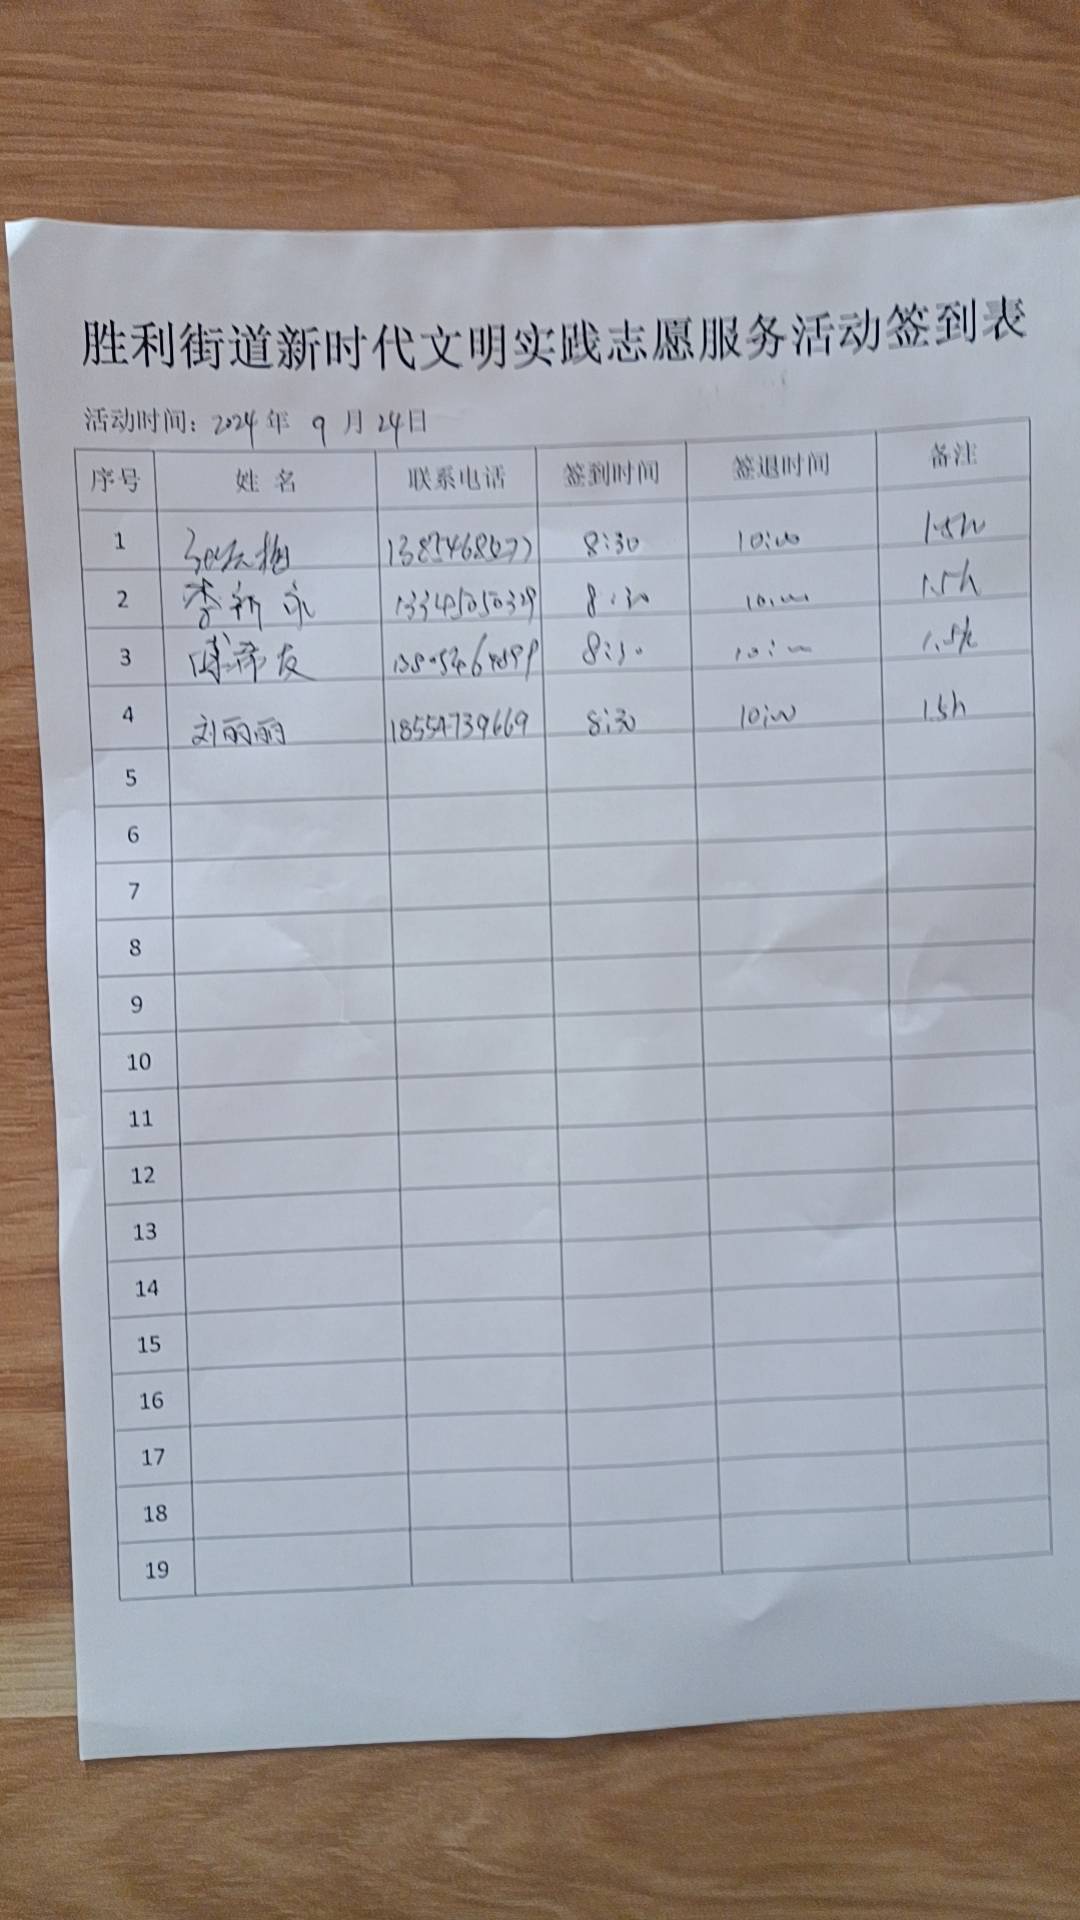 胜利街道新时代文明实践志愿服务活动签到表
活动时间: 2024 年 9 月 24日
序号 姓 名 联系电话 签到时间 签退时间 备注
1 8:30 10:00 1.5h
2 李新永 8:30 10:00 1.5h
3 友 8:30 10:00 1.5h
4 刘丽丽 18554739669 8:30 10:00 1.5h
5
6
7
8
9
10
11
12
13
14
15
16
17
18
19